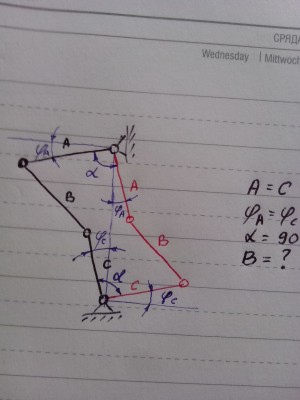 СРЯДА
Wednesday | Mittwoch
A
φA
α
A
φA
B
B
φc
C
α
C
φc
A = C
φA = φc
α = 90
B = ?